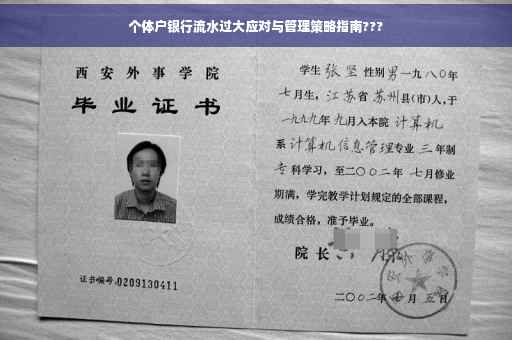 个体户银行流水过大应对与管理策略指南???
西安外事学院
毕业证书
证书编号:0209130411
学生 张坚 性别 男 一九八〇年
七月生, 江苏省 苏州 县(市)人, 于
一九九九年 九月入本院 计算机
系 计算机信息管理 专业 三 年制
专科学习, 至二〇〇二年 七月修业
期满, 学完教学计划规定的全部课程,
成绩合格, 准予毕业。
院长
二〇〇二年 月五日